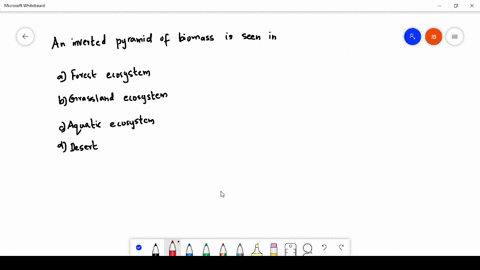 Microsoft Whiteboard
An inverted pyramid of biomass is seen in
a) Forest ecosystem
b) Grassland ecosystem
c) Aquatic ecosystem
d) Desert